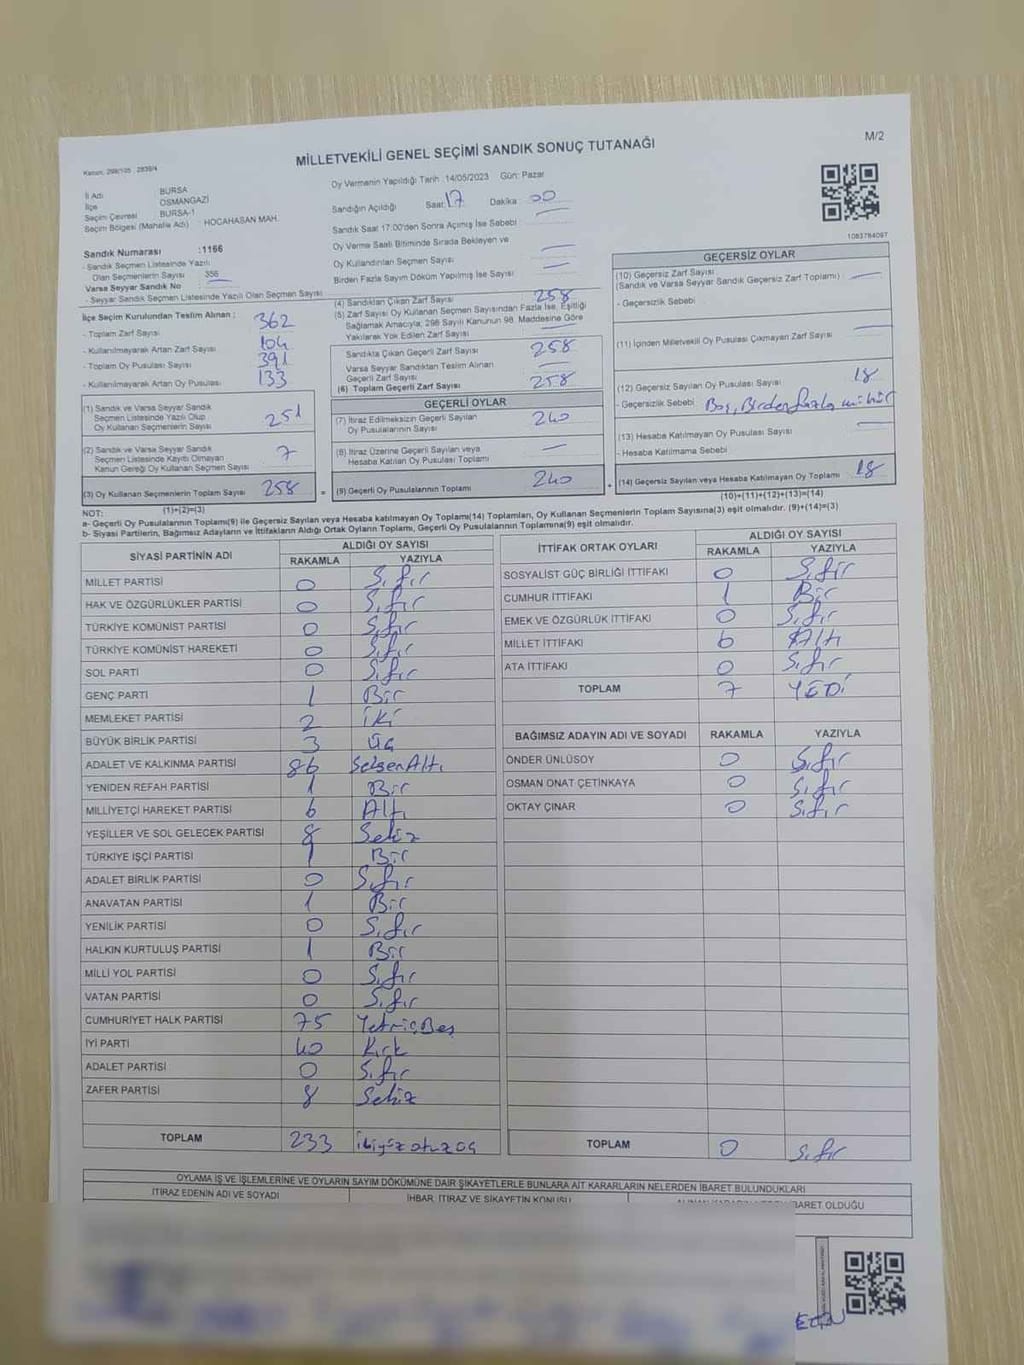 MİLLETVEKİLİ GENEL SEÇİMİ SANDIK SONUÇ TUTANAĞI
M/2
Kanun: 298/105 , 2839/4
Oy Vermenin Yapıldığı Tarih : 14/05/2023 Gün: Pazar
İl Adı BURSA
İlçe OSMANGAZİ
Seçim Çevresi BURSA-1
Seçim Bölgesi (Mahalle Adı) HOCAHASAN MAH.
Sandığın Açıldığı Saat: 17 Dakika 00
Sandık Saat 17:00'den Sonra Açımış İse Sebebi
Oy Verme Saati Bitiminde Sırada Bekleyen ve
Oy Kullandırılan Seçmen Sayısı
Birden Fazla Sayım Döküm Yapılmış İse Sayısı
1083784097
Sandık Numarası : 1166
- Sandık Seçmen Listesinde Yazılı
Olan Seçmenlerin Sayısı 356
Varsa Seyyar Sandık No
- Seyyar Sandık Seçmen Listesinde Yazılı Olan Seçmen Sayısı
İlçe Seçim Kurulundan Teslim Alınan :
- Toplam Zarf Sayısı 362
- Kullanılmayarak Artan Zarf Sayısı 104
- Toplam Oy Pusulası Sayısı 391
- Kullanılmayarak Artan Oy Pusulası 133
(4) Sandıktan Çıkan Zarf Sayısı 258
(5) Zarf Sayısı Oy Kullanan Seçmen Sayısından Fazla İse, Eşitliği
Sağlamak Amacıyla; 298 Sayılı Kanunun 98. Maddesine Göre
Yakılarak Yok Edilen Zarf Sayısı
Sandıkta Çıkan Geçerli Zarf Sayısı 258
Varsa Seyyar Sandıktan Teslim Alınan
Geçerli Zarf Sayısı
(6) Toplam Geçerli Zarf Sayısı 258
(1) Sandık ve Varsa Seyyar Sandık
Seçmen Listesinde Yazılı Olup
Oy Kullanan Seçmenlerin Sayısı 251
(2) Sandık ve Varsa Seyyar Sandık
Seçmen Listesinde Kayıtlı Olmayan
Kanun Gereği Oy Kullanan Seçmen Sayısı 7
(3) Oy Kullanan Seçmenlerin Toplam Sayısı 258
(1)+(2)=(3)
GEÇERLİ OYLAR
(7) İtiraz Edilmeksizin Geçerli Sayılan
Oy Pusulalarının Sayısı 240
(8) İtiraz Üzerine Geçerli Sayılan veya
Hesaba Katılan Oy Pusulası Toplamı
= (9) Geçerli Oy Pusulalarının Toplamı 240
GEÇERSİZ OYLAR
(10) Geçersiz Zarf Sayısı
(Sandık ve Varsa Seyyar Sandık Geçersiz Zarf Toplamı)
- Geçersizlik Sebebi
(11) İçinden Milletvekili Oy Pusulası Çıkmayan Zarf Sayısı
(12) Geçersiz Sayılan Oy Pusulası Sayısı 18
- Geçersizlik Sebebi Boş, Birden fazla mühür
(13) Hesaba Katılmayan Oy Pusulası Sayısı
- Hesaba Katılmama Sebebi
(14) Geçersiz Sayılan veya Hesaba Katılmayan Oy Toplamı 18
(10)+(11)+(12)+(13)=(14)
NOT:
a- Geçerli Oy Pusulalarının Toplamı(9) ile Geçersiz Sayılan veya Hesaba katılmayan Oy Toplamı(14) Toplamları, Oy Kullanan Seçmenlerin Toplam Sayısına(3) eşit olmalıdır. (9)+(14)=(3)
b- Siyasi Partilerin, Bağımsız Adayların ve İttifakların Aldığı Ortak Oyların Toplamı, Geçerli Oy Pusulalarının Toplamına(9) eşit olmalıdır.
SİYASİ PARTİNİN ADI ALDIĞI OY SAYISI
RAKAMLA YAZIYLA
MİLLET PARTİSİ 0 Sıfır
HAK VE ÖZGÜRLÜKLER PARTİSİ 0 Sıfır
TÜRKİYE KOMÜNİST PARTİSİ 0 Sıfır
TÜRKİYE KOMÜNİST HAREKETİ 0 Sıfır
SOL PARTİ 0 Sıfır
GENÇ PARTİ 1 Bir
MEMLEKET PARTİSİ 2 İki
BÜYÜK BİRLİK PARTİSİ 3 Üç
ADALET VE KALKINMA PARTİSİ 86 SeksenAltı
YENİDEN REFAH PARTİSİ 1 Bir
MİLLİYETÇİ HAREKET PARTİSİ 6 Altı
YEŞİLLER VE SOL GELECEK PARTİSİ 8 Sekiz
TÜRKİYE İŞÇİ PARTİSİ 1 Bir
ADALET BİRLİK PARTİSİ 0 Sıfır
ANAVATAN PARTİSİ 1 Bir
YENİLİK PARTİSİ 0 Sıfır
HALKIN KURTULUŞ PARTİSİ 1 Bir
MİLLİ YOL PARTİSİ 0 Sıfır
VATAN PARTİSİ 0 Sıfır
CUMHURİYET HALK PARTİSİ 75 YetmişBeş
İYİ PARTİ 40 Kırk
ADALET PARTİSİ 0 Sıfır
ZAFER PARTİSİ 8 Sekiz
TOPLAM 233 ikiyüzotuzüç
İTTİFAK ORTAK OYLARI ALDIĞI OY SAYISI
RAKAMLA YAZIYLA
SOSYALİST GÜÇ BİRLİĞİ İTTİFAKI 0 Sıfır
CUMHUR İTTİFAKI 1 Bir
EMEK VE ÖZGÜRLÜK İTTİFAKI 0 Sıfır
MİLLET İTTİFAKI 6 Altı
ATA İTTİFAKI 0 Sıfır
TOPLAM 7 YEDİ
BAĞIMSIZ ADAYIN ADI VE SOYADI RAKAMLA YAZIYLA
ÖNDER ÜNLÜSOY 0 Sıfır
OSMAN ONAT ÇETİNKAYA 0 Sıfır
OKTAY ÇINAR 0 Sıfır
TOPLAM 0 Sıfır
OYLAMA İŞ VE İŞLEMLERİNE VE OYLARIN SAYIM DÖKÜMÜNE DAİR ŞİKAYETLERLE BUNLARA AİT KARARLARIN NELERDEN İBARET BULUNDUKLARI
İTİRAZ EDENİN ADI VE SOYADI İHBAR, İTİRAZ VE ŞİKAYETİN KONUSU İBARET OLDUĞU